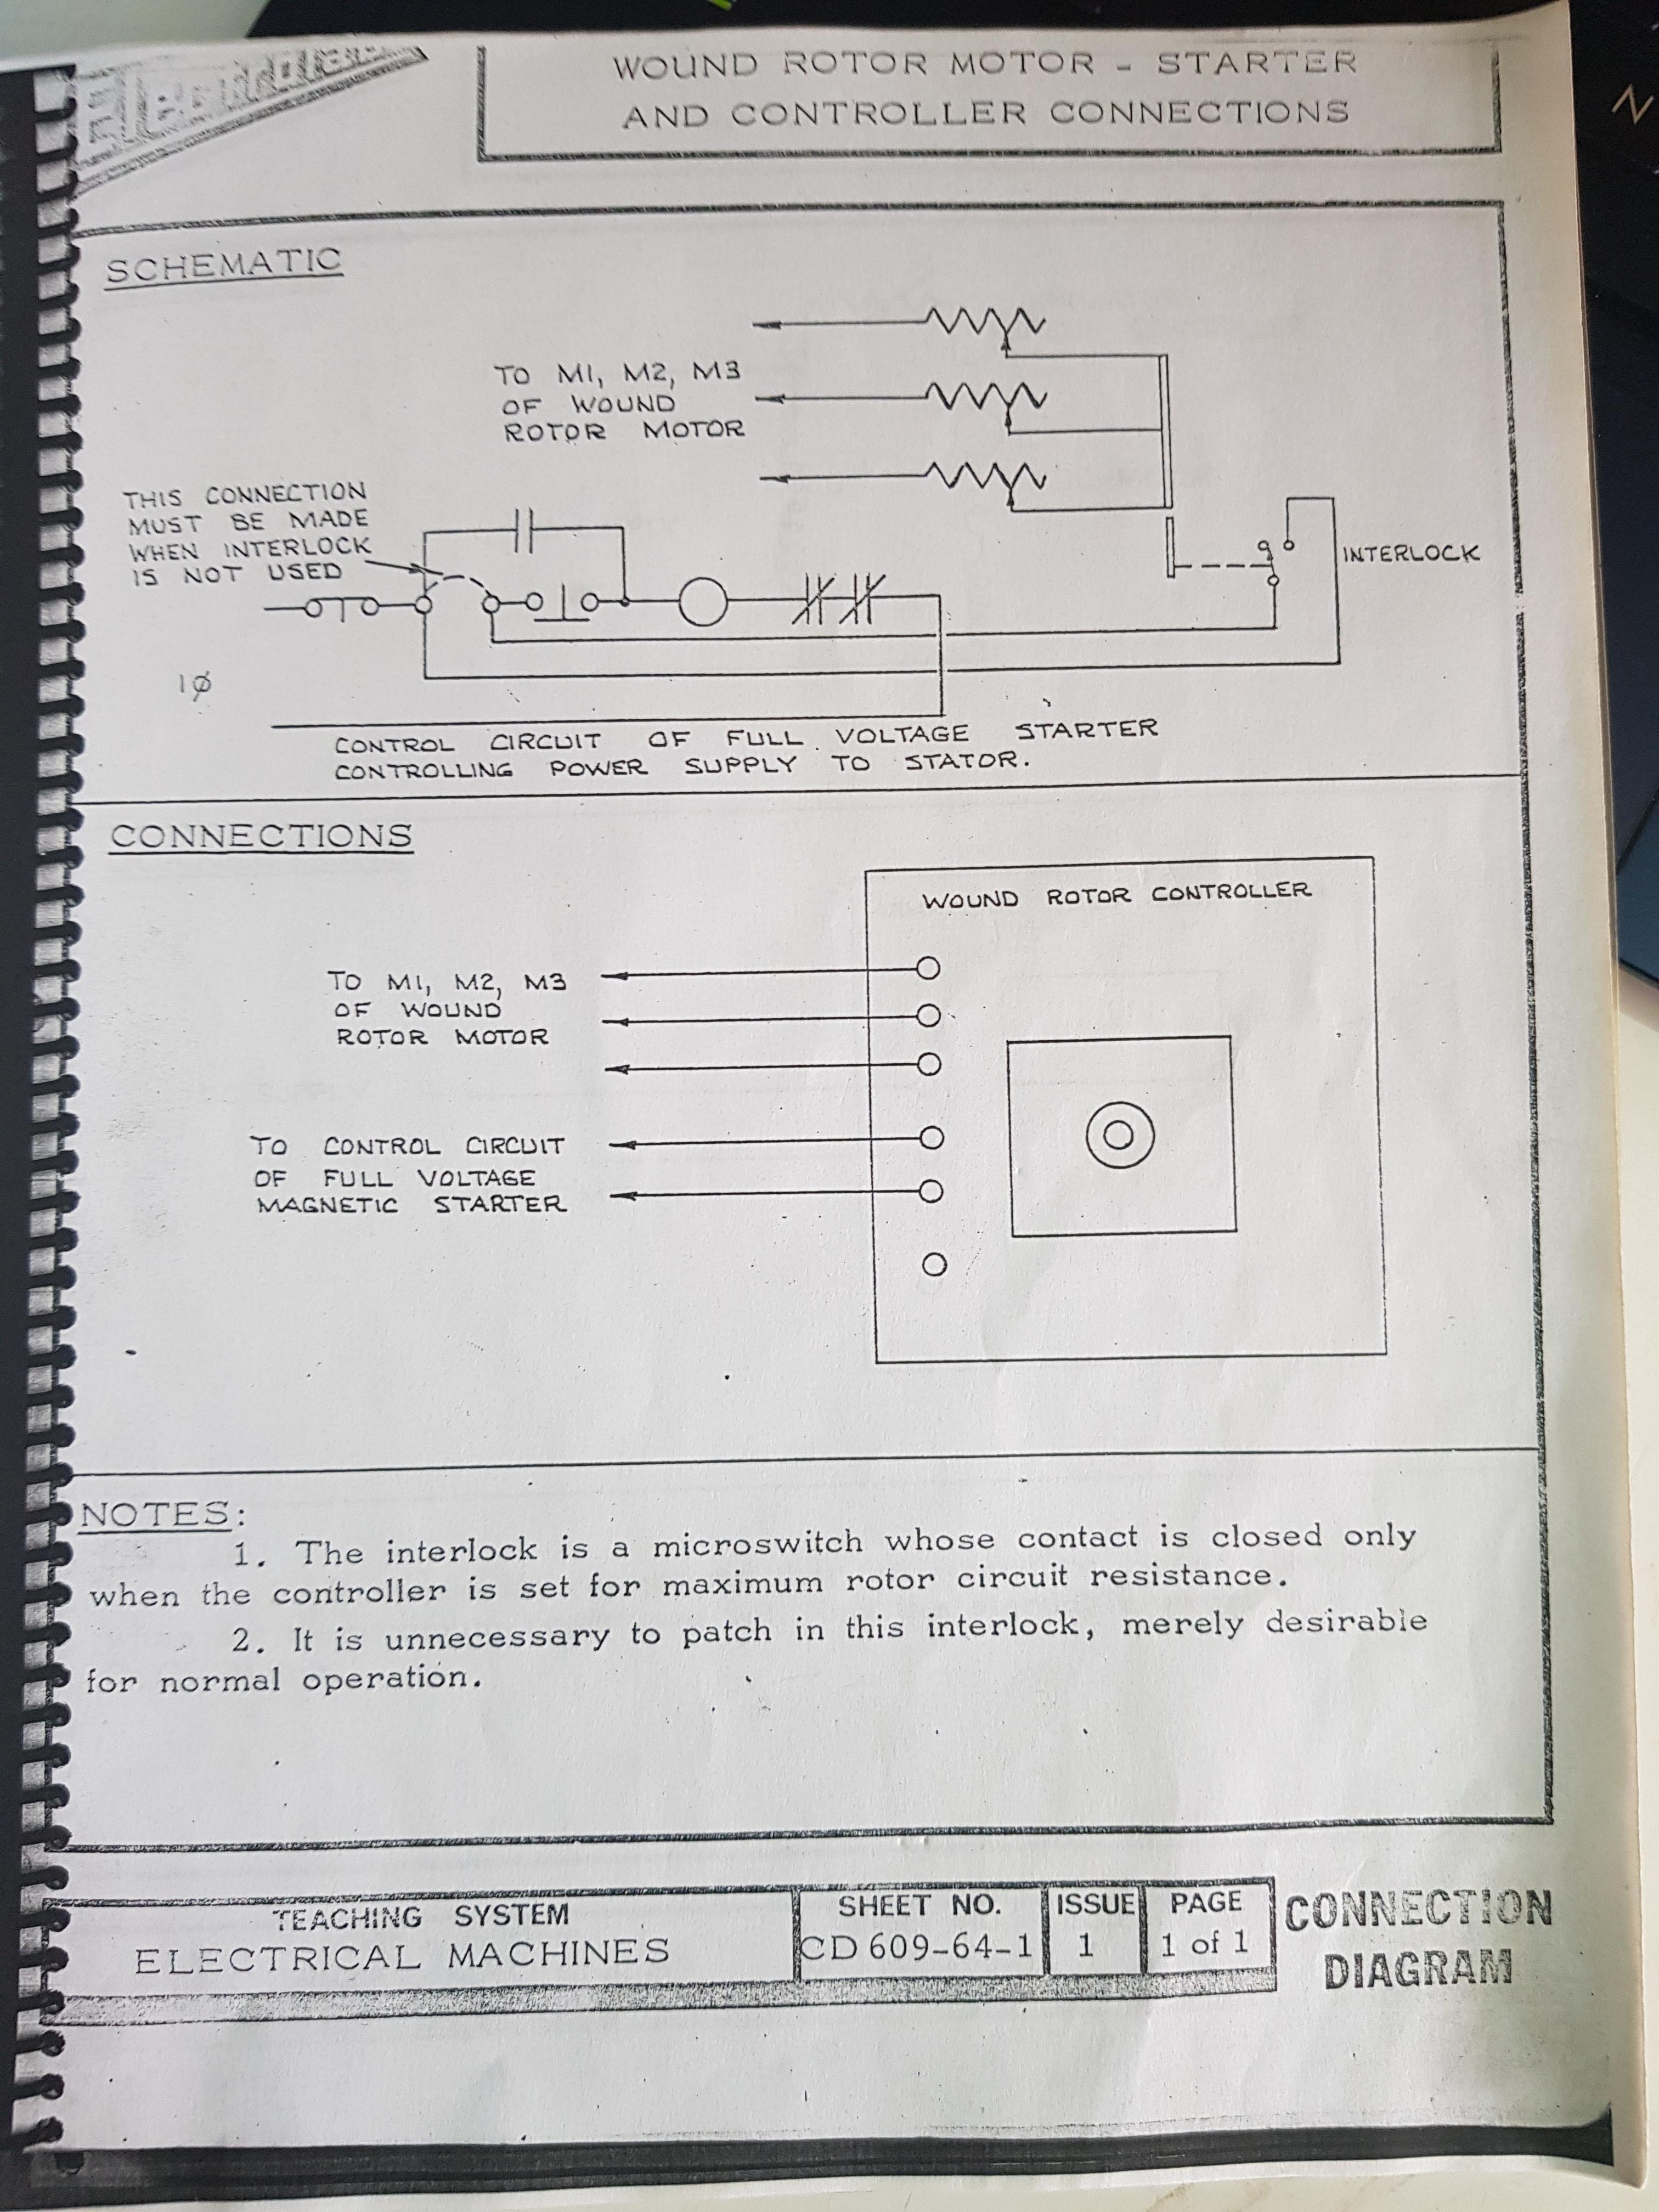 WOUND ROTOR MOTOR - STARTER
AND CONTROLLER CONNECTIONS
SCHEMATIC
TO M1, M2, M3
OF WOUND
ROTOR MOTOR
THIS CONNECTION
MUST BE MADE
WHEN INTERLOCK
IS NOT USED
INTERLOCK
1Ø
CONTROL CIRCUIT OF FULL VOLTAGE STARTER
CONTROLLING POWER SUPPLY TO STATOR.
CONNECTIONS
WOUND ROTOR CONTROLLER
TO M1, M2, M3
OF WOUND
ROTOR MOTOR
TO CONTROL CIRCUIT
OF FULL VOLTAGE
MAGNETIC STARTER
NOTES:
1. The interlock is a microswitch whose contact is closed only
when the controller is set for maximum rotor circuit resistance.
2. It is unnecessary to patch in this interlock, merely desirable
for normal operation.
TEACHING SYSTEM
ELECTRICAL MACHINES
SHEET NO.
CD 609-64-1
ISSUE
1
PAGE
1 of 1
CONNECTION
DIAGRAM